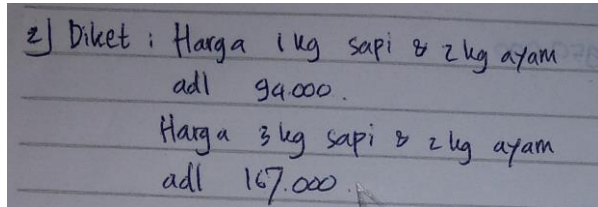 2) Diket : Harga 1 kg sapi & 2 kg ayam
adl 94.000.
Harga 3 kg sapi & 2 kg ayam
adl 167.000.